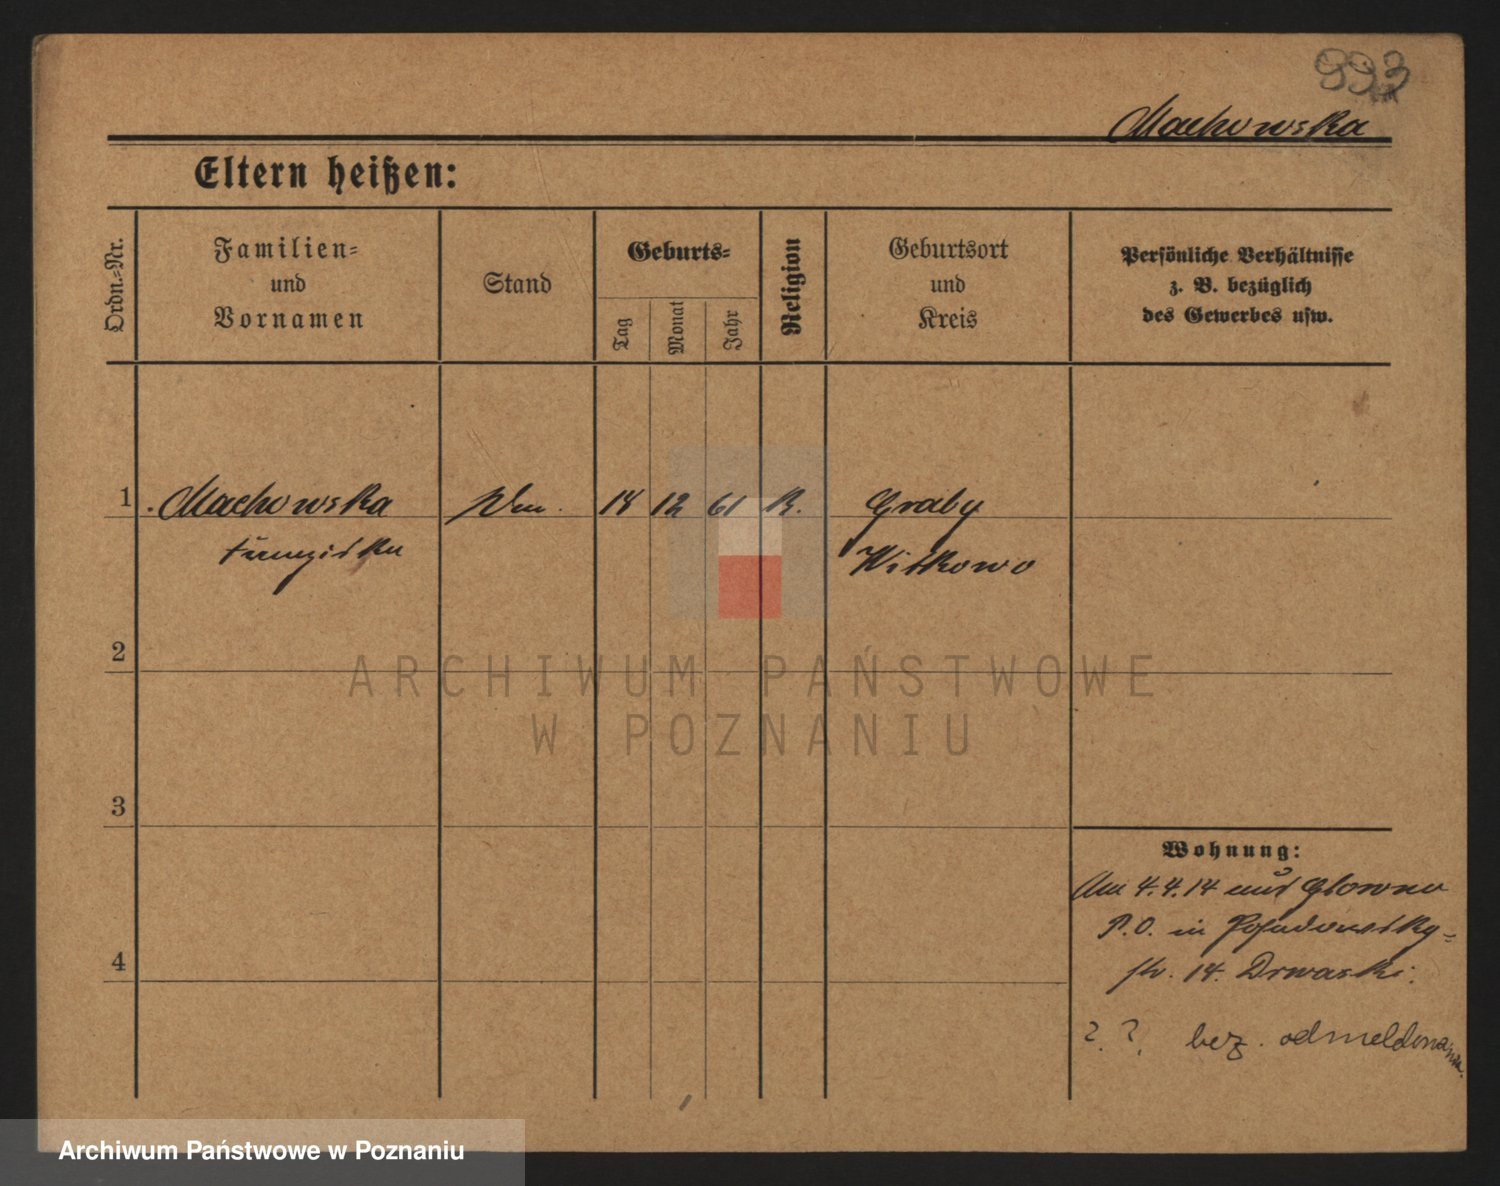 993
Machowska
Eltern heißen:
Ordn.-Nr.
Familien-
und
Vornamen
Stand
Geburts-
Tag
Monat
Jahr
Religion
Geburtsort
und
Kreis
Persönliche Verhältnisse
z. B. bezüglich
des Gewerbes usw.
1 Machowska 18 12 61 K. Graby
Franziska Witkowo
2
3
4
Wohnung:
Am 4.4.14 aus Glowno
P.O. in
str. 14. Drwaski.
? ? bez. odmeldowania.
ARCHIWUM PAŃSTWOWE
W POZNANIU
Archiwum Państwowe w Poznaniu